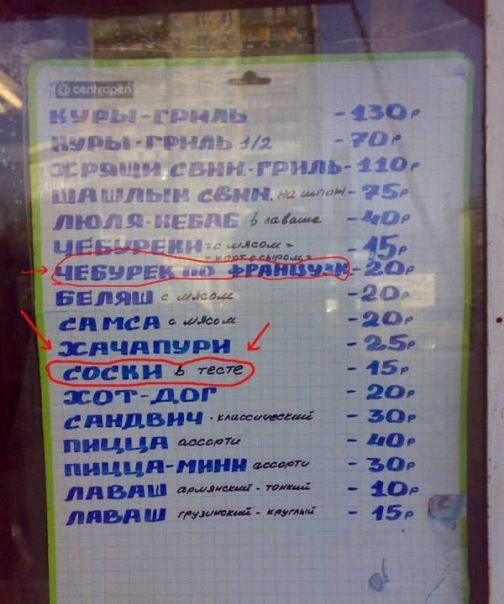 centropen
КУРЫ-ГРИЛЬ - 130р
КУРЫ-ГРИЛЬ 1/2 - 70р
ХРЯЩИ СВИН.-ГРИЛЬ - 110р
ШАШЛЫК СВИН. на шпаж - 75р
ЛЮЛЯ-КЕБАБ в лаваше - 40р
ЧЕБУРЕКИ "с мясом" "карто.сыром" - 15р
ЧЕБУРЕК ПО ФРАНЦУЗК - 20р
БЕЛЯШ с мясом - 20р
САМСА с мясом - 20р
ХАЧАПУРИ - 25р
СОСКИ в тесте - 15р
ХОТ-ДОГ - 20р
САНДВИЧ - классический - 30р
ПИЦЦА ассорти - 40р
ПИЦЦА-МИНИ ассорти - 30р
ЛАВАШ армянский - тонкий - 10р
ЛАВАШ грузинский - круглый - 15р